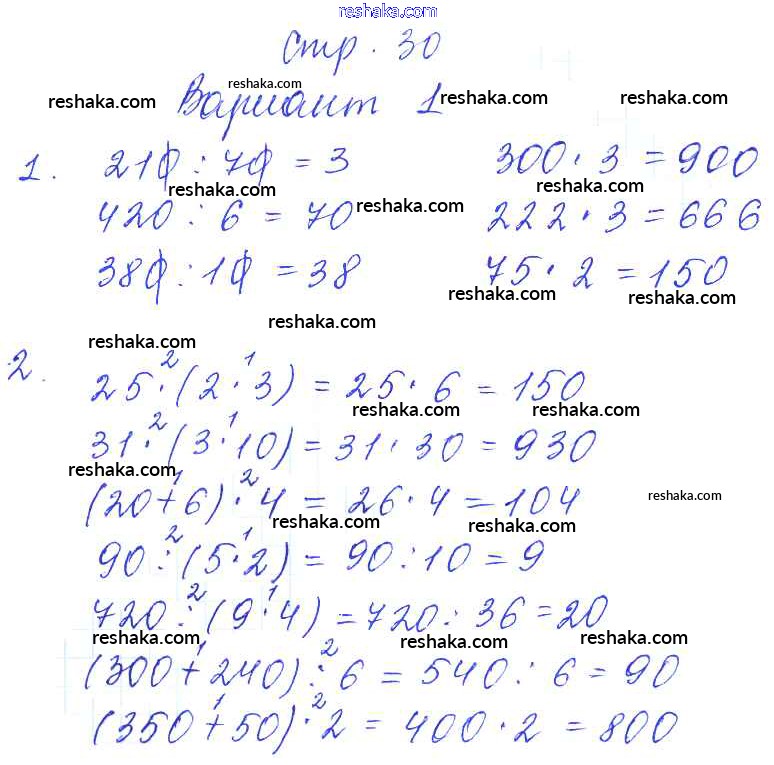 reshaka.com
Стр. 30
reshaka.com
reshaka.com Вариант 1 reshaka.com reshaka.com
1. 210 : 70 = 3 300 · 3 = 900
reshaka.com reshaka.com
420 : 6 = 70 reshaka.com 222 · 3 = 666
380 : 10 = 38 75 · 2 = 150
reshaka.com reshaka.com
reshaka.com
reshaka.com
2 1
2. 25 · (2 · 3) = 25 · 6 = 150
reshaka.com reshaka.com
2 1
31 · (3 · 10) = 31 · 30 = 930
reshaka.com
1 2
(20 + 6) · 4 = 26 · 4 = 104 reshaka.com
reshaka.com reshaka.com
2 1
90 : (5 · 2) = 90 : 10 = 9
2 1
720 : (9 · 4) = 720 : 36 = 20
reshaka.com reshaka.com reshaka.com
1 2
(300 + 240) : 6 = 540 : 6 = 90
1 2
(350 + 50) · 2 = 400 · 2 = 800